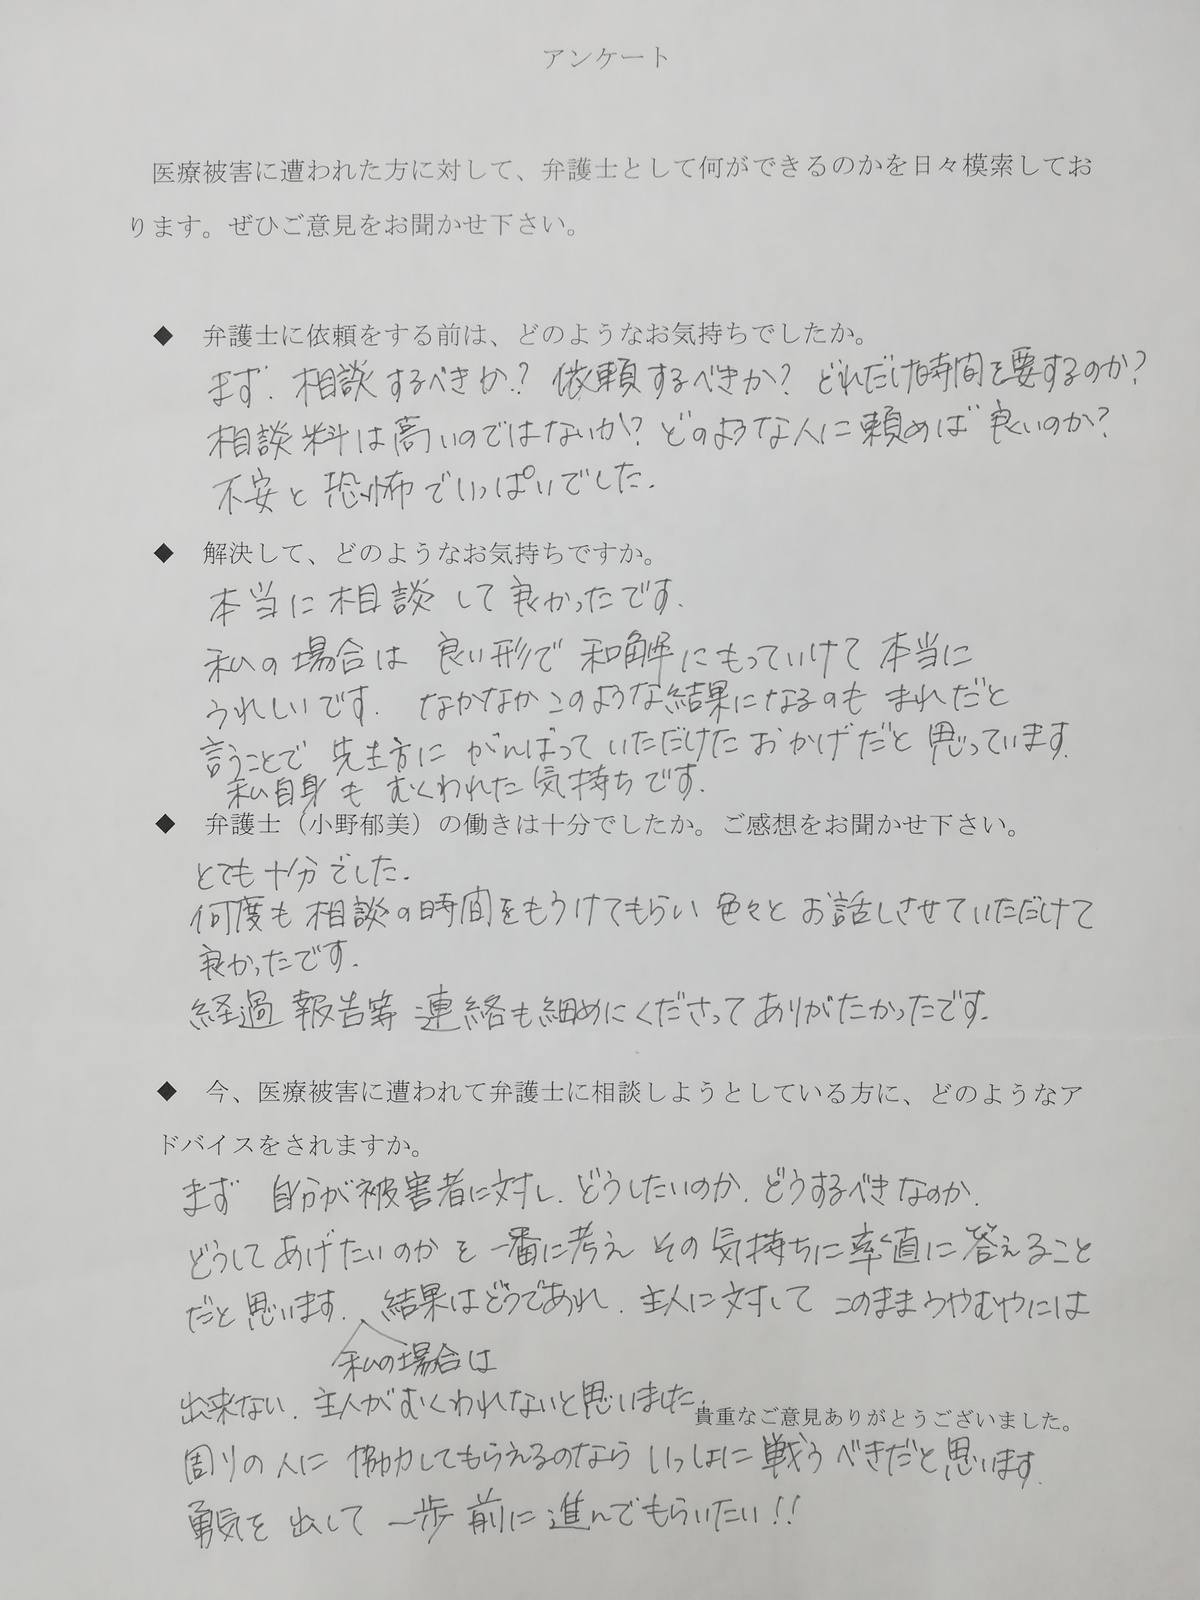 アンケート
医療被害に遭われた方に対して、弁護士として何ができるのかを日々模索してお
ります。ぜひご意見をお聞かせ下さい。
◆ 弁護士に依頼をする前は、どのようなお気持ちでしたか。
まず、相談するべきか？依頼するべきか？どれだけ時間を要するのか？
相談料は高いのではないか？どのような人に頼めば良いのか？
不安と恐怖でいっぱいでした。
◆ 解決して、どのようなお気持ちですか。
本当に相談して良かったです。
私の場合は良い形で和解にもっていけて本当に
うれしいです。なかなかこのような結果になるのもまれだと
言うことで先生方にがんばっていただけたおかげだと思っています。
私自身もむくわれた気持ちです。
◆ 弁護士（小野郁美）の働きは十分でしたか。ご感想をお聞かせ下さい。
とても十分でした。
何度も相談の時間をもうけてもらい色々とお話しさせていただけて
良かったです。
経過報告等連絡も細めにくださってありがたかったです。
◆ 今、医療被害に遭われて弁護士に相談しようとしている方に、どのようなア
ドバイスをされますか。
まず 自分が被害者に対し、どうしたいのか、どうするべきなのか、
どうしてあげたいのかを一番に考えその気持ちに率直に答えること
だと思います。結果はどうであれ、主人に対してこのままうやむやには
私の場合は
出来ない、主人がむくわれないと思いました。
貴重なご意見ありがとうございました。
周りの人に協力してもらえるのならいっしょに戦うべきだと思います。
勇気を出して一歩前に進んでもらいたい！！